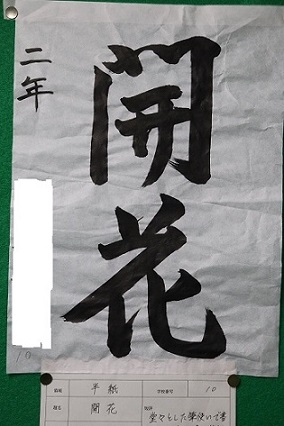 開花
二年
10
半紙
学校番号
10
題名
開花
短評
堂々とした筆使いで書